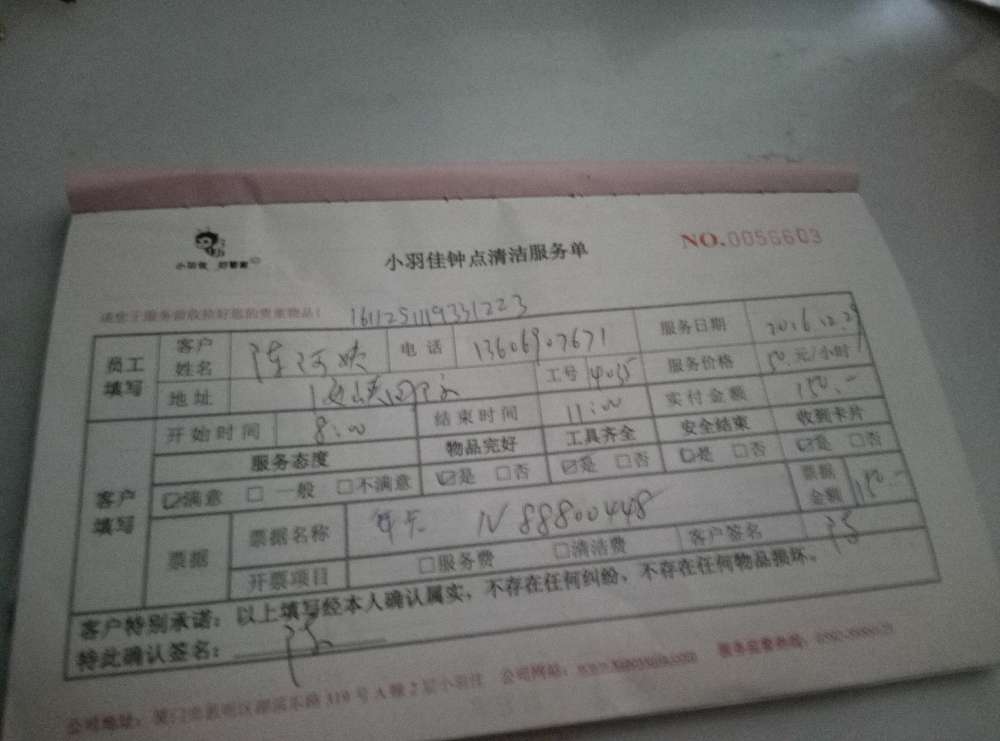 小羽佳 好管家
小羽佳钟点清洁服务单
NO.0056603
请您于服务前收拾好您的贵重物品!
1611251119331223
员工填写
客户姓名 陈
电话 13606907671
服务日期 2016.12.29
地址
工号 14035
服务价格 50元/小时
客户填写
开始时间 8:00
结束时间 11:00
实付金额 150.-
服务态度 物品完好 工具齐全 安全结束 收到卡片
☑满意 □一般 □不满意 ☑是 □否 ☑是 □否 ☑是 □否 ☑是 □否
票据
票据名称 年卡 N 88800448
票据金额 150.-
开票项目 □服务费 □清洁费 客户签名
客户特别承诺:以上填写经本人确认属实,不存在任何纠纷,不存在任何物品损坏。
特此确认签名:
公司地址:厦门市思明区湖滨东路319号A幢2层小羽佳 公司网站:www.xiaoyujia.com 服务监督热线: